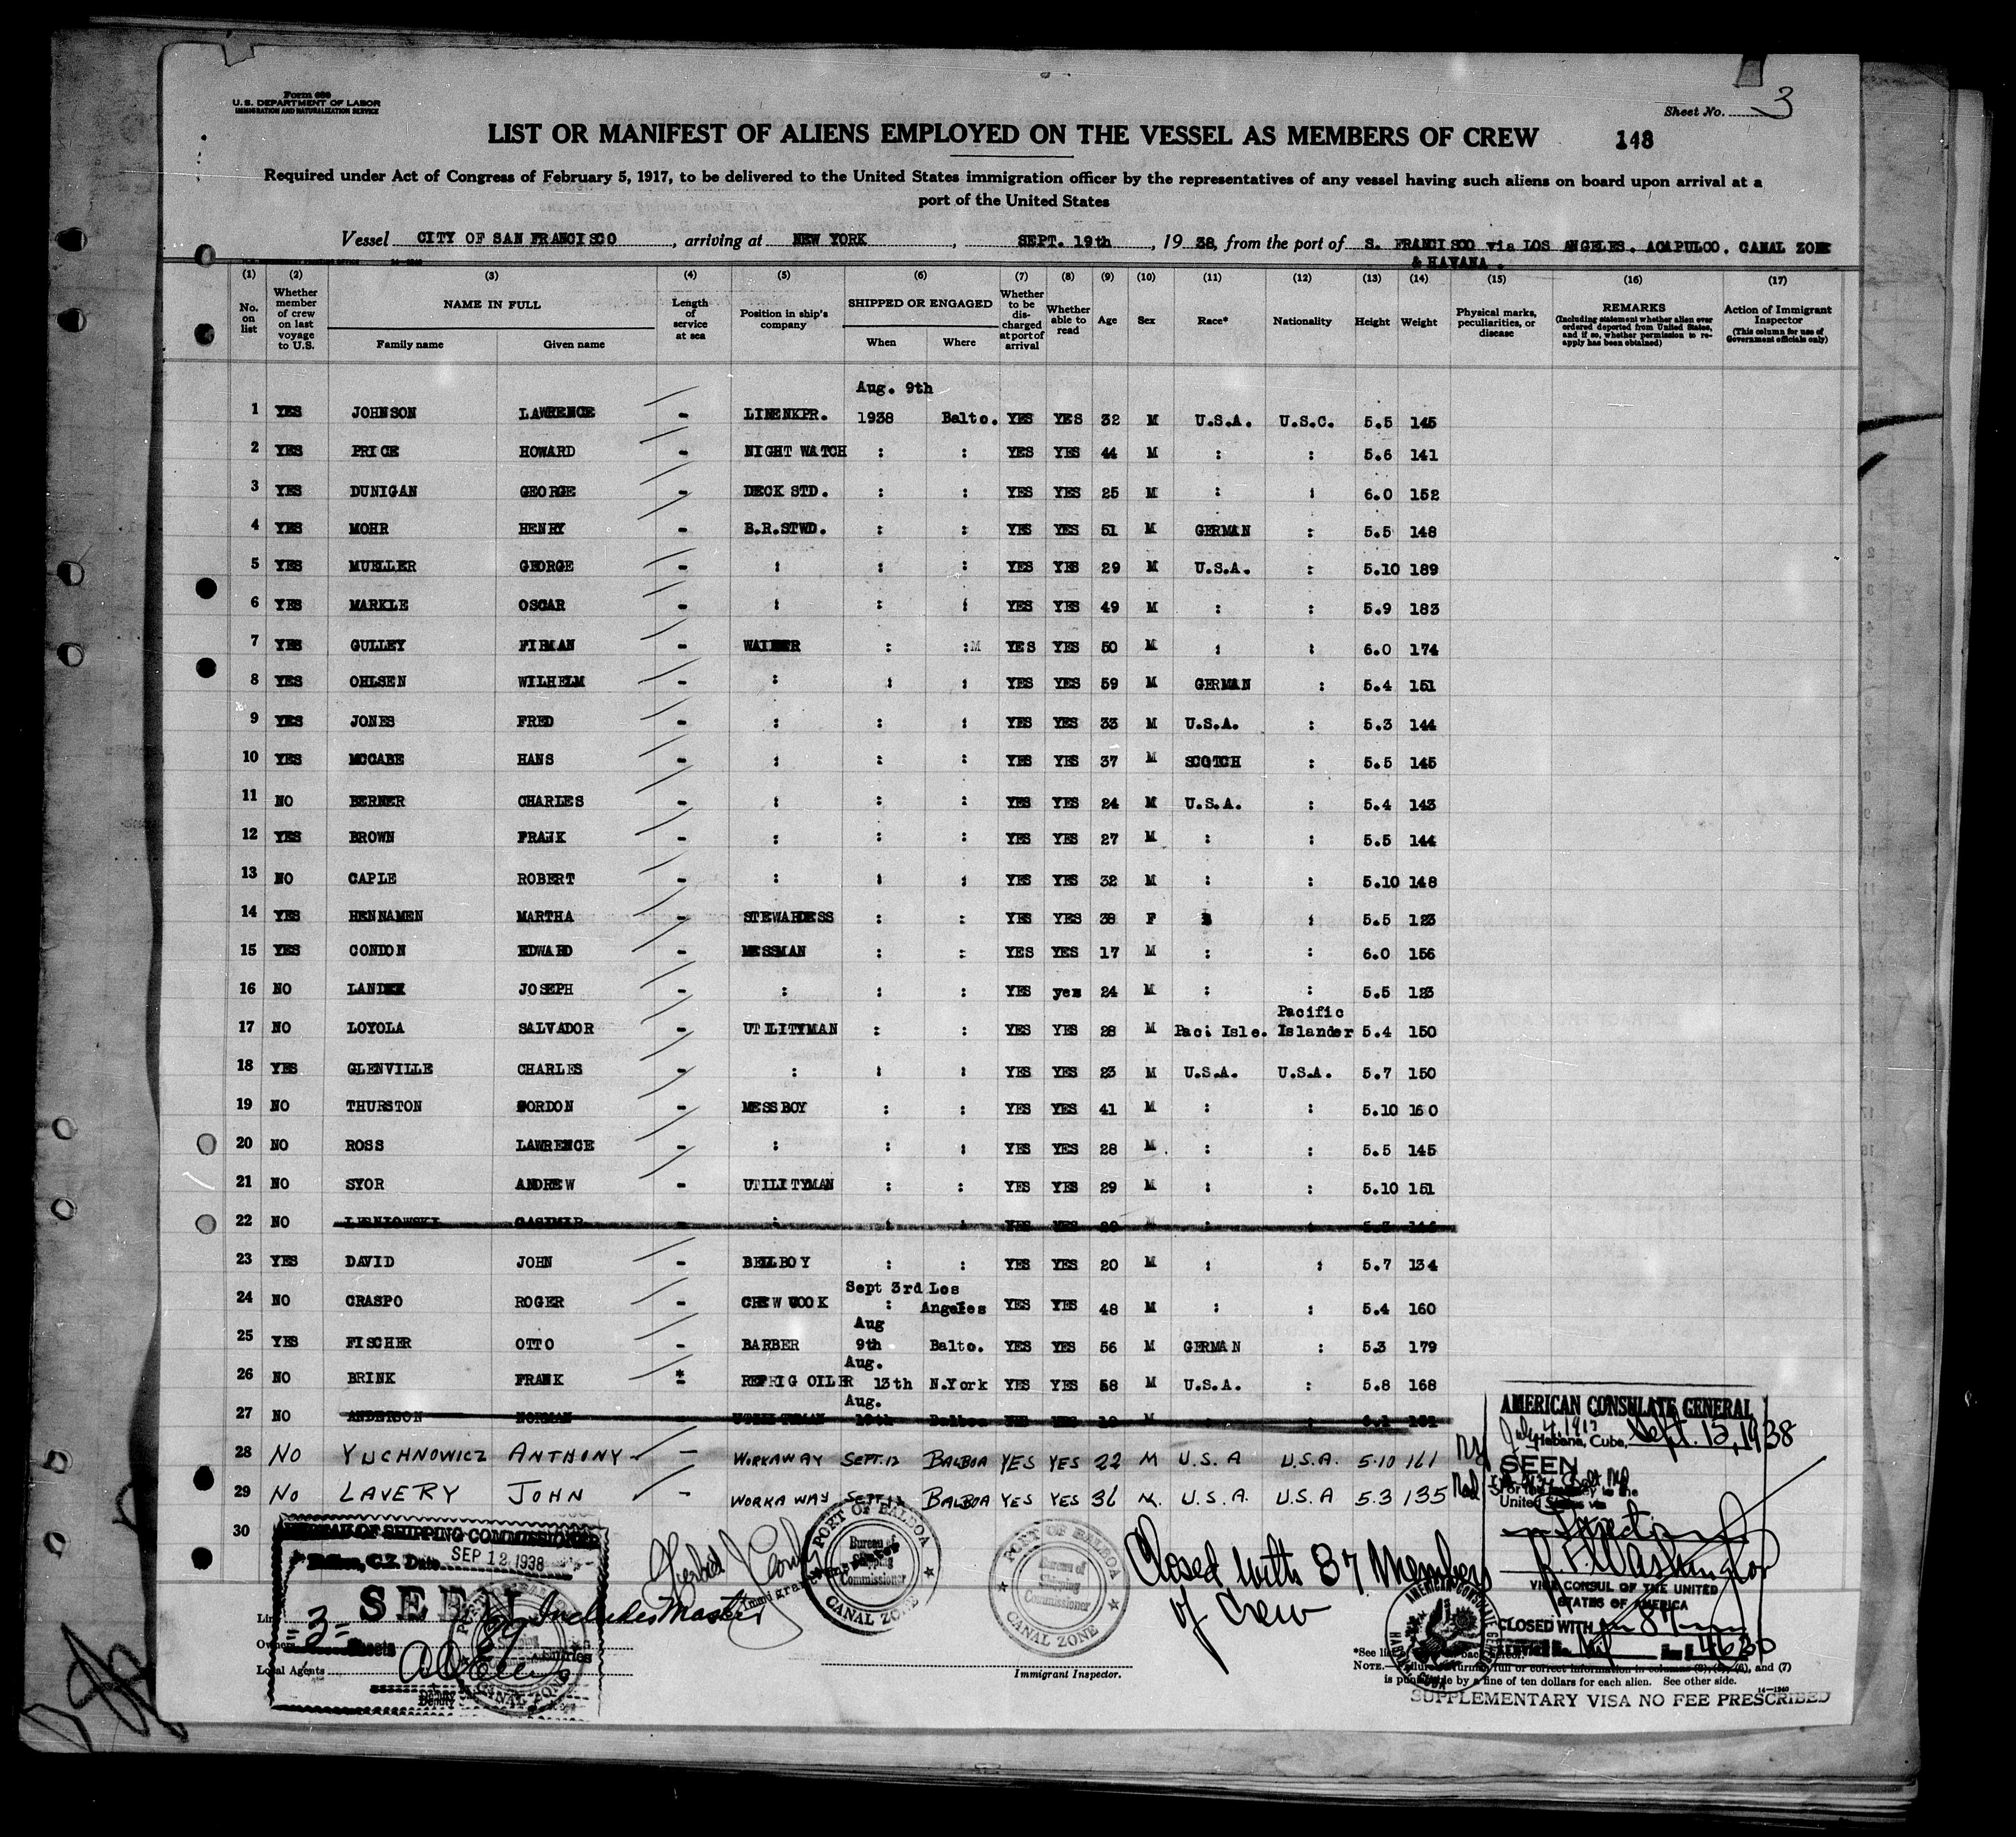 Form 680
U.S. DEPARTMENT OF LABOR
IMMIGRATION AND NATURALIZATION SERVICE
Sheet No. 3
LIST OR MANIFEST OF ALIENS EMPLOYED ON THE VESSEL AS MEMBERS OF CREW 148
Required under Act of Congress of February 5, 1917, to be delivered to the United States immigration officer by the representatives of any vessel having such aliens on board upon arrival at a
port of the United States
Vessel CITY OF SAN FRANCISCO, arriving at NEW YORK, SEPT. 19th, 1938, from the port of S. FRANCISCO via LOS ANGELES. ACAPULCO. CANAL ZONE
& HAVANA.
(1) (2) (3) (4) (5) (6) (7) (8) (9) (10) (11) (12) (13) (14) (15) (16) (17)
No. on list
Whether member of crew on last voyage to U.S.
NAME IN FULL
Family name Given name
Length of service at sea
Position in ship's company
SHIPPED OR ENGAGED
When Where
Whether to be discharged at port of arrival
Whether able to read
Age Sex Race* Nationality Height Weight
Physical marks, peculiarities, or disease
REMARKS
(Including statement whether alien ever ordered deported from United States, and if so, whether permission to reapply has been obtained)
Action of Immigrant Inspector
(This column for use of Government officials only)
Aug. 9th
1 YES JOHNSON LAWRENCE - LINENKPR. 1938 Balto. YES YES 32 M U.S.A. U.S.C. 5.5 145
2 YES PRICE HOWARD - NIGHT WATCH : : YES YES 44 M : : 5.6 141
3 YES DUNIGAN GEORGE - DECK STD. : : YES YES 25 M : : 6.0 152
4 YES MOHR HENRY - B.R.STWD. : : YES YES 51 M GERMAN : 5.5 148
5 YES MUELLER GEORGE - : : : YES YES 29 M U.S.A. : 5.10 189
6 YES MARKLE OSCAR - : : : YES YES 49 M : : 5.9 183
7 YES GULLEY FIRMAN - WAITER : :M YES YES 50 M : : 6.0 174
8 YES OHLSEN WILHELM - : : : YES YES 59 M GERMAN : 5.4 151
9 YES JONES FRED - : : : YES YES 33 M U.S.A. : 5.3 144
10 YES MCCABE HANS - : : : YES YES 37 M SCOTCH : 5.5 145
11 NO BERNER CHARLES - : : : YES YES 24 M U.S.A. : 5.4 143
12 YES BROWN FRANK - : : : YES YES 27 M : : 5.5 144
13 NO CAPLE ROBERT - : : : YES YES 32 M : : 5.10 148
14 YES HENNAMEN MARTHA - STEWARDESS : : YES YES 38 F : : 5.5 123
15 YES CONDON EDWARD - MESSMAN : : YES YES 17 M : : 6.0 156
16 NO JOSEPH - : : : YES yes 24 M : : 5.5 123
Pacific
17 NO LOYOLA SALVADOR - UTILITYMAN : : YES YES 28 M Paci Isle. Islander 5.4 150
18 YES GLENVILLE CHARLES - : : : YES YES 23 M U.S.A. U.S.A. 5.7 150
19 NO THURSTON GORDON - MESSBOY : : YES YES 41 M : : 5.10 160
20 NO ROSS LAWRENCE - : : : YES YES 28 M : : 5.5 145
21 NO SYOR ANDREW - UTILITYMAN : : YES YES 29 M : : 5.10 151
22 NO LESNIOWSKI CASIMIR
23 YES DAVID JOHN - BELLBOY : : YES YES 20 M : : 5.7 134
Sept 3rd Los
24 NO CRASPO ROGER - CREW COOK : Angeles YES YES 48 M : : 5.4 160
Aug
25 YES FISCHER OTTO - BARBER 9th Balto. YES YES 56 M GERMAN : 5.3 179
Aug.
26 NO BRINK FRANK - REFRIG OILER 13th N.York YES YES 58 M U.S.A. : 5.8 168
Aug.
27 NO ANDERSON NORMAN - UTILITYMAN Balboa
28 NO YUCHNOWICZ ANTHONY - WORKAWAY SEPT. 12 BALBOA YES YES 22 M U.S.A U.S.A. 5.10 161
29 NO LAVERY JOHN - WORKAWAY SEPT. 12 BALBOA YES YES 36 M. U.S.A. U.S.A 5.3 135
30
AMERICAN CONSULATE GENERAL
Habana, Cuba, Sept. 15, 1938
SEEN
United States
VICE CONSUL OF THE UNITED
STATES OF AMERICA
CLOSED WITH 87
4630
BUREAU OF SHIPPING COMMISSIONER
Balboa, C.Z. Date SEP 12 1938
SEEN
3 Sheets
89 Entries
Includes Master
Deputy
Line
Owners
Local Agents
Immigrant Inspector
PORT OF BALBOA
Bureau of Shipping Commissioner
CANAL ZONE
PORT OF BALBOA
Bureau of Shipping Commissioner
CANAL ZONE
Closed with 87 Members
of Crew
AMERICAN CONSULATE GENERAL
Immigrant Inspector.
NOTE.—Failure to furnish full or correct information in columns (3), (5), (6), and (7)
is punishable by a fine of ten dollars for each alien. See other side.
14—1240
SUPPLEMENTARY VISA NO FEE PRESCRIBED